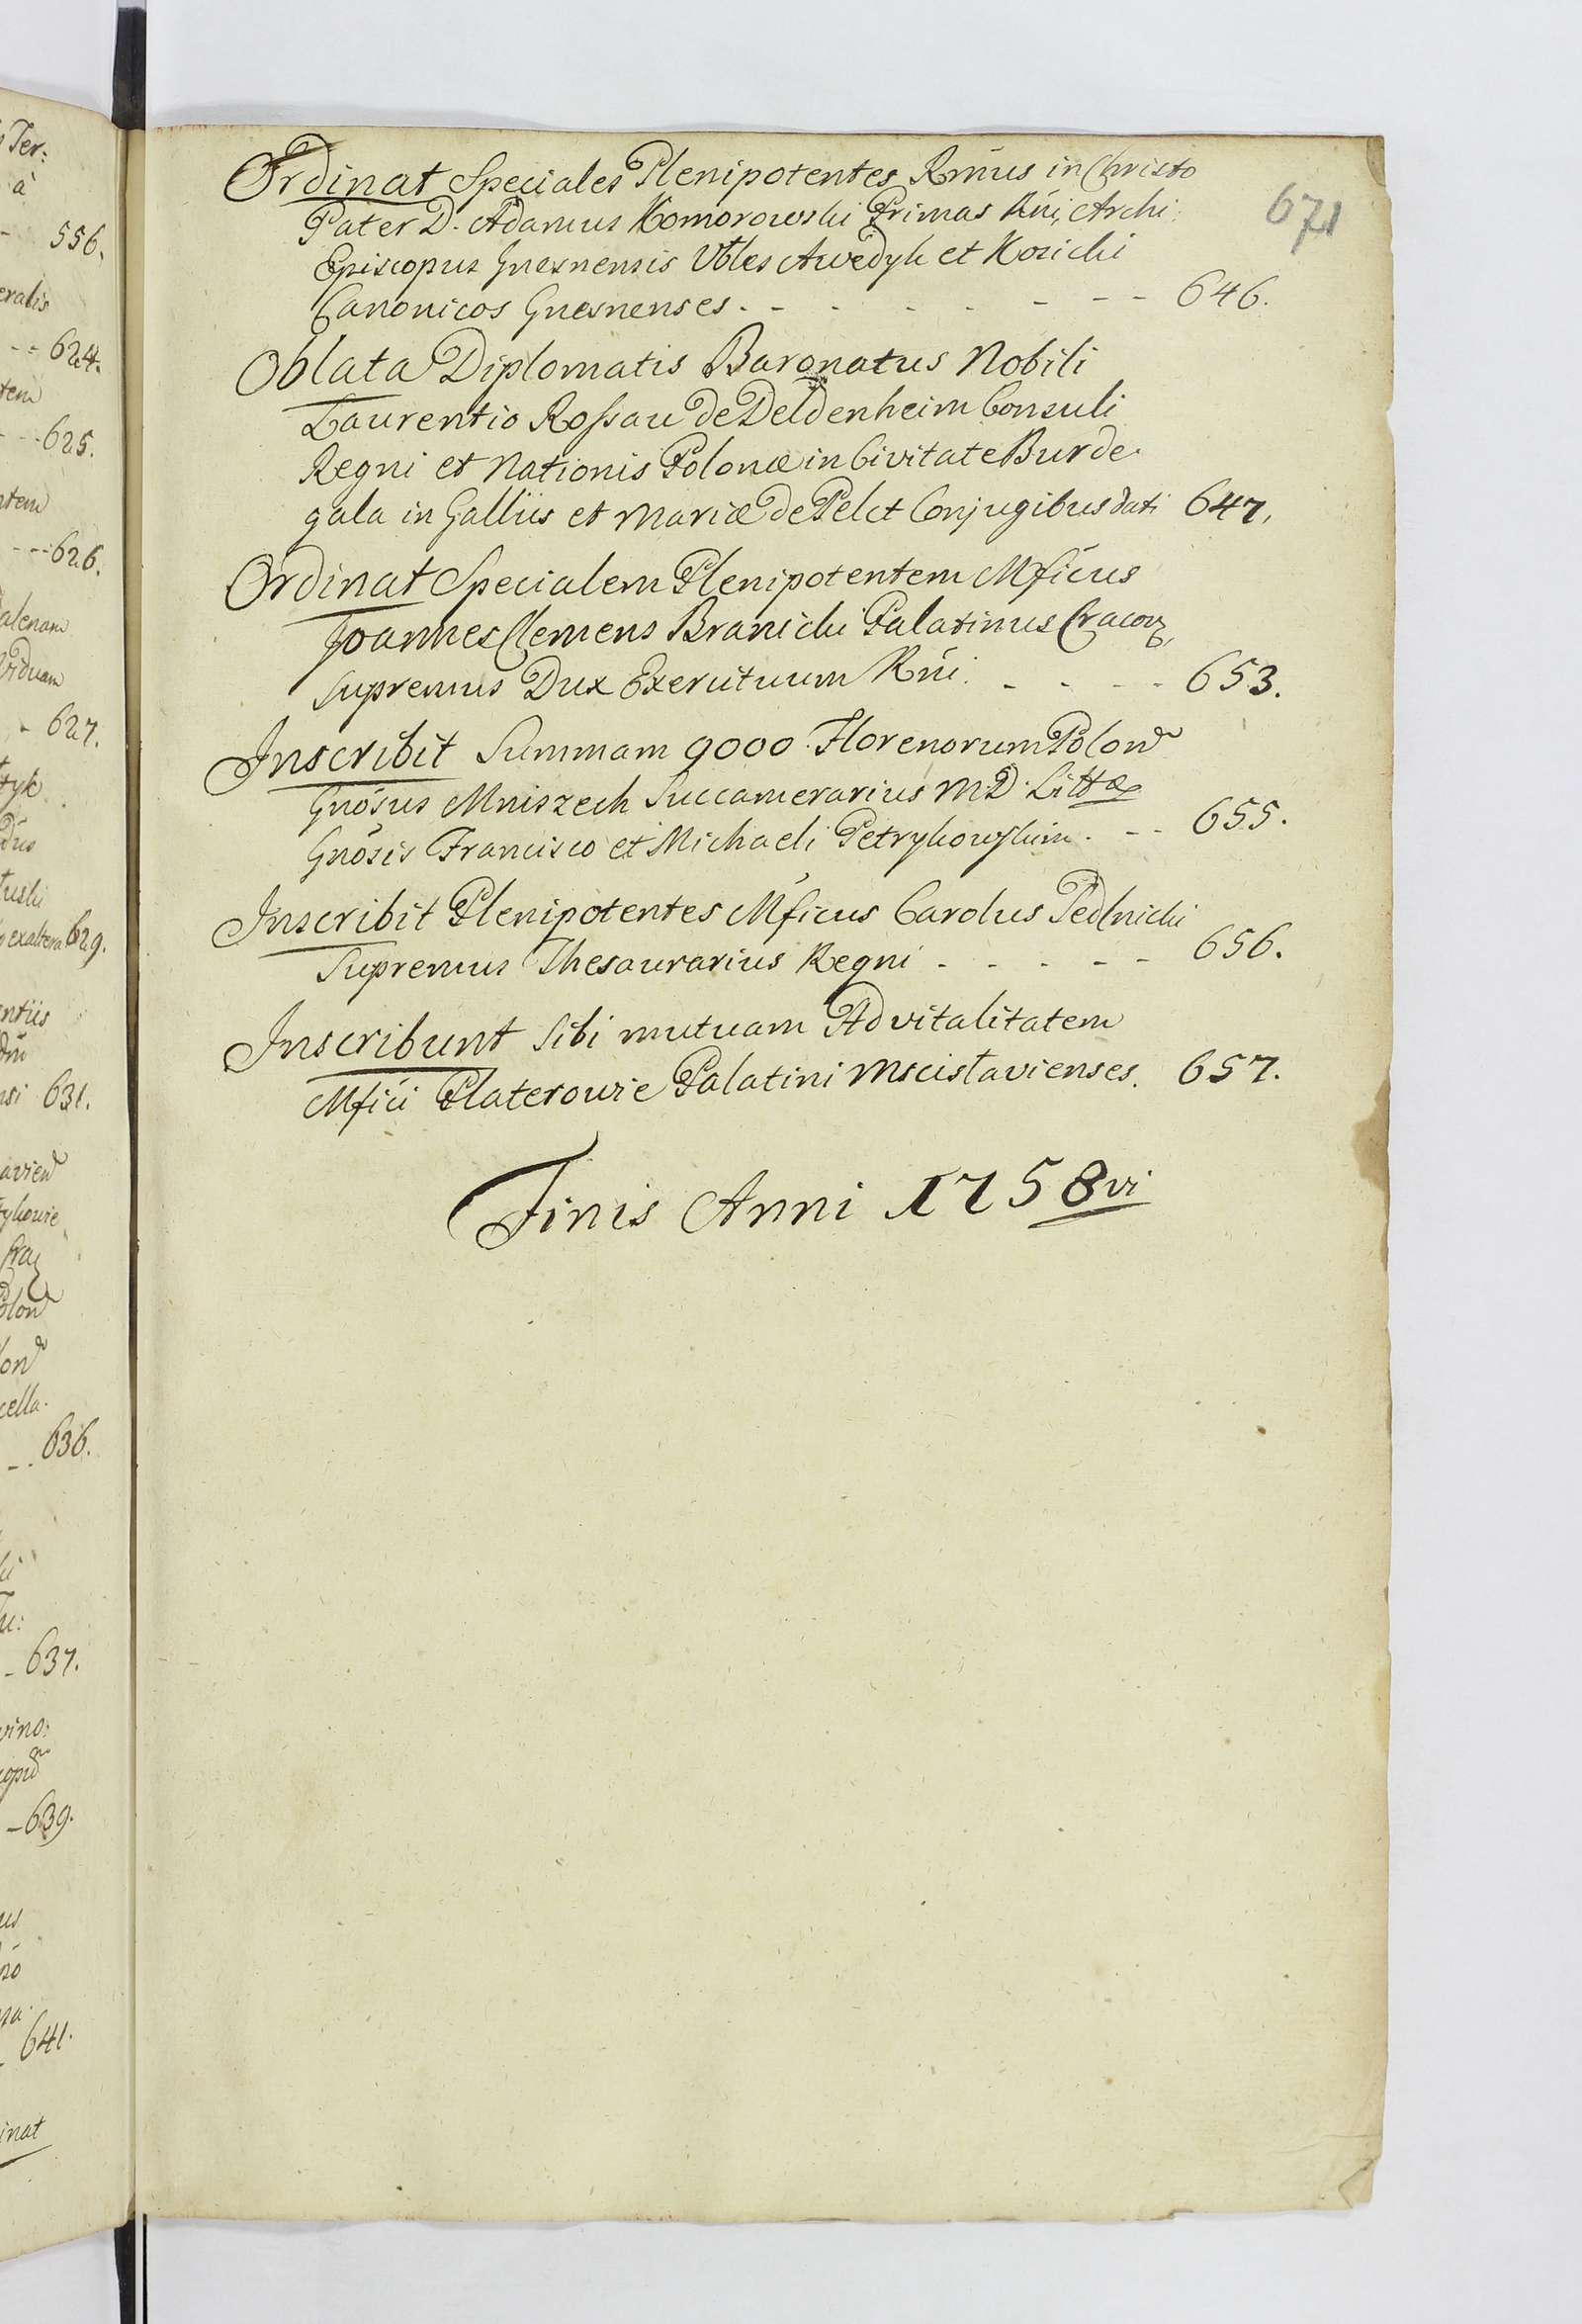 Ter:
à
556.
eralis
624.
tem
625.
ntem
626.
alenam
Viduam
627.
tyk
exaltera 629.
entiis
nsi 631.
avien
ykowie
Cra
Polon
lon
cella.
636.
637.
639.
641.
inat
671
Ordinat Speciales Plenipotentes Rmus in Christo
Pater D. Adamus Komorowski Primas Rni, Archi:
Episcopus Gnesnensis Vbles Awedyk et Kosicki
Canonicos Gnesnenses. - - - - - - - 646.
Oblata Diplomatis Baronatus Nobili
Laurentio Rossau de Deldenheim Consuli
Regni et Nationis Polonæ in Civitate Burde
gala in Galliis et Mariæ de Pelet Conjugibus dati 647.
Ordinat Specialem Plenipotentem Mficus
Joannes Clemens Branicki Palatinus Cracov,
Supremus Dux Exercituum Rni. - - - - 653.
Inscribit Summam 9000. Florenorum Polon
Gnosus Mniszech Succamerarius M D. Littæ
Gnosis Francisco et Michaeli Petrykowskim. - - 655.
Inscribit Plenipotentes Mficus Carolus Sedlnicki
Supremus Thesaurarius Regni - - - - - 656.
Inscribunt Sibi mutuam Advitalitatem
Mfici Platerowie Palatini Mscislavienses. 657.
Finis Anni 1758vi